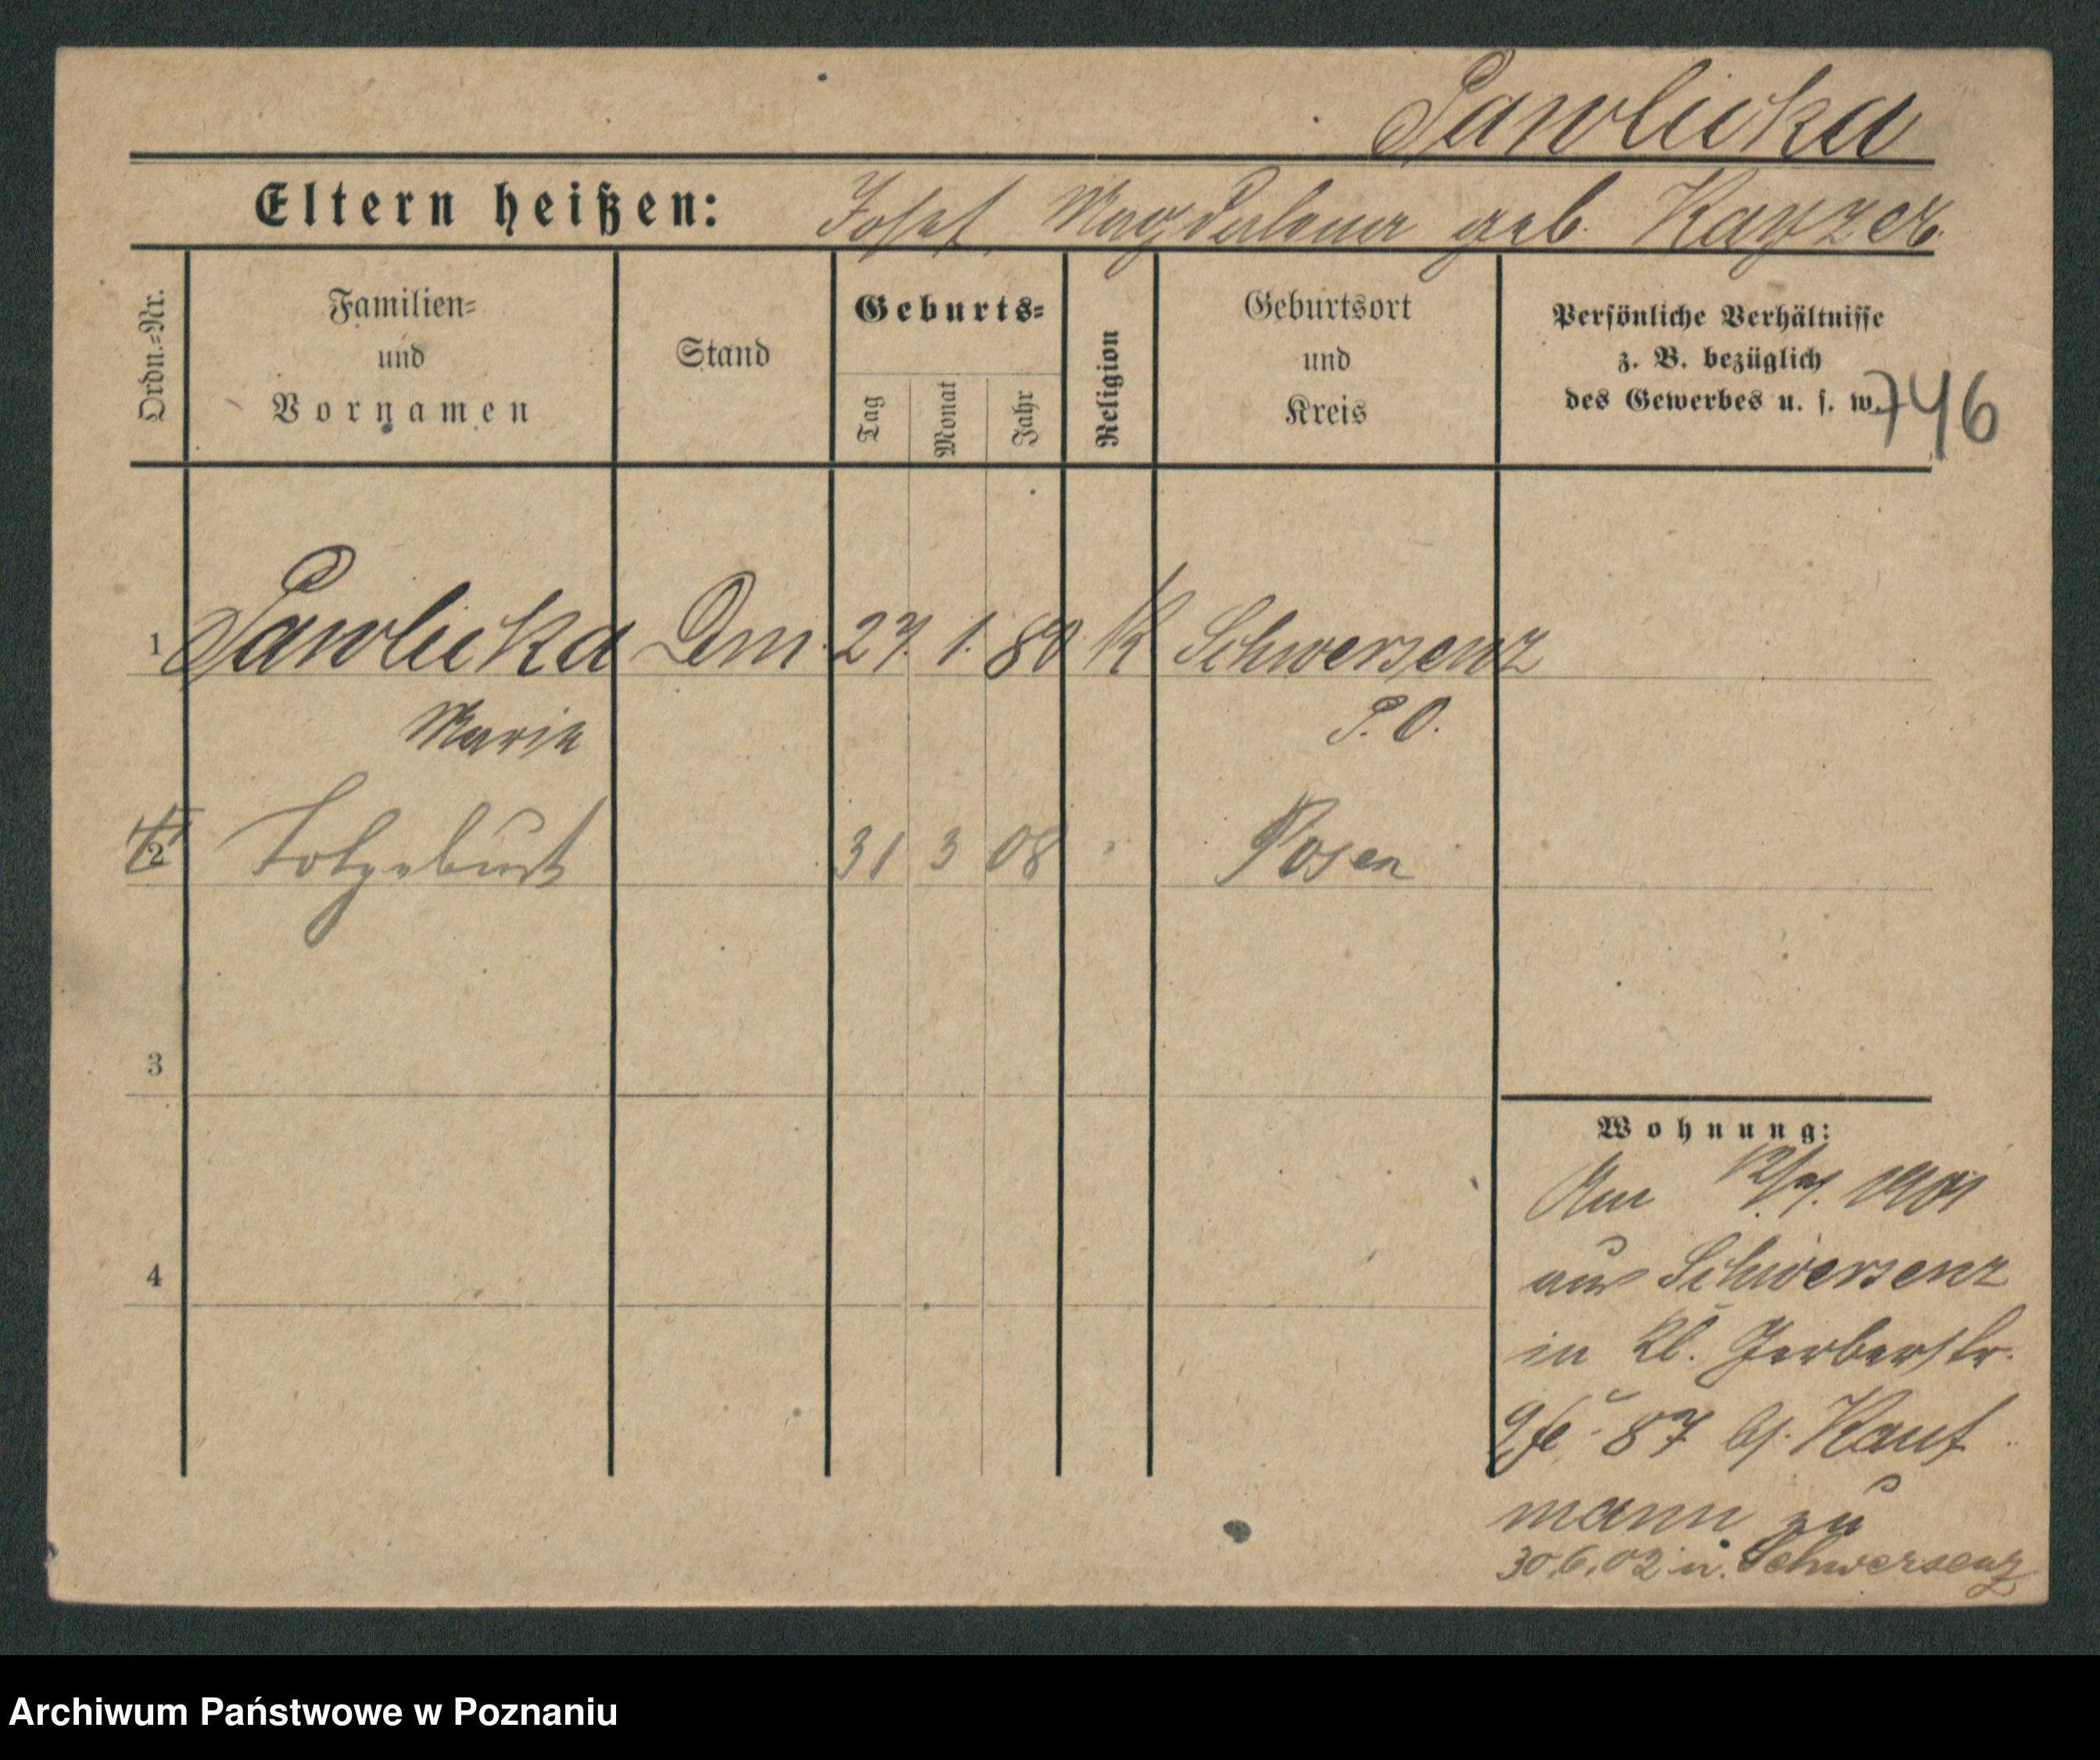 Pawlicka
Eltern heißen: Josef, Magdalena geb. Kayzer.
Ordn.-Nr.
Familien-
und
Vornamen
Stand
Geburts-
Tag
Monat
Jahr
Religion
Geburtsort
und
Kreis
Persönliche Verhältnisse
z. B. bezüglich
des Gewerbes u. s. w.
746
1 Pawlicka Dm. 27. 1. 80 K Schwersenz
Marie P. O.
2 Totgeburt 31 3 08 Posen
3
4
Wohnung:
Am 1901
aus Schwersenz
in Kl. Gerberstr.
87 Kauf
mann zu
30.6.02 n. Schwersenz
Archiwum Państwowe w Poznaniu